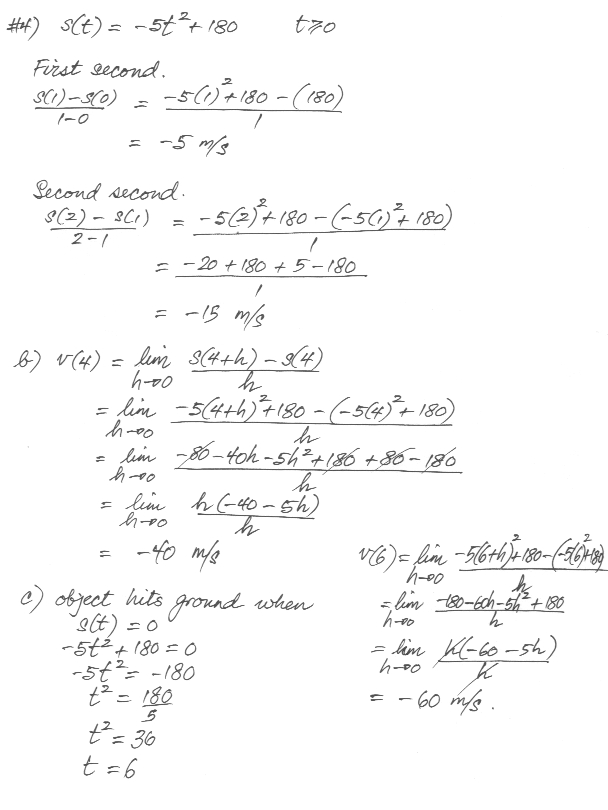 #4) s(t) = -5t² + 180 t≥0
First second.
s(1)-s(0) / 1-0 = -5(1)² + 180 - (180) / 1
= -5 m/s
Second second.
s(2) - s(1) / 2-1 = -5(2)² + 180 - (-5(1)² + 180) / 1
= -20 + 180 + 5 - 180 / 1
= -15 m/s
b) v(4) = lim h→0 s(4+h) - s(4) / h
= lim h→0 -5(4+h)² + 180 - (-5(4)² + 180) / h
= lim h→0 -80 - 40h - 5h² + 180 + 80 - 180 / h
= lim h→0 h(-40 - 5h) / h
= -40 m/s
c) object hits ground when
s(t) = 0
-5t² + 180 = 0
-5t² = -180
t² = 180 / 5
t² = 36
t = 6
v(6) = lim h→0 -5(6+h)² + 180 - (-5(6)² + 180) / h
= lim h→0 -180 - 60h - 5h² + 180 / h
= lim h→0 h(-60 - 5h) / h
= -60 m/s.